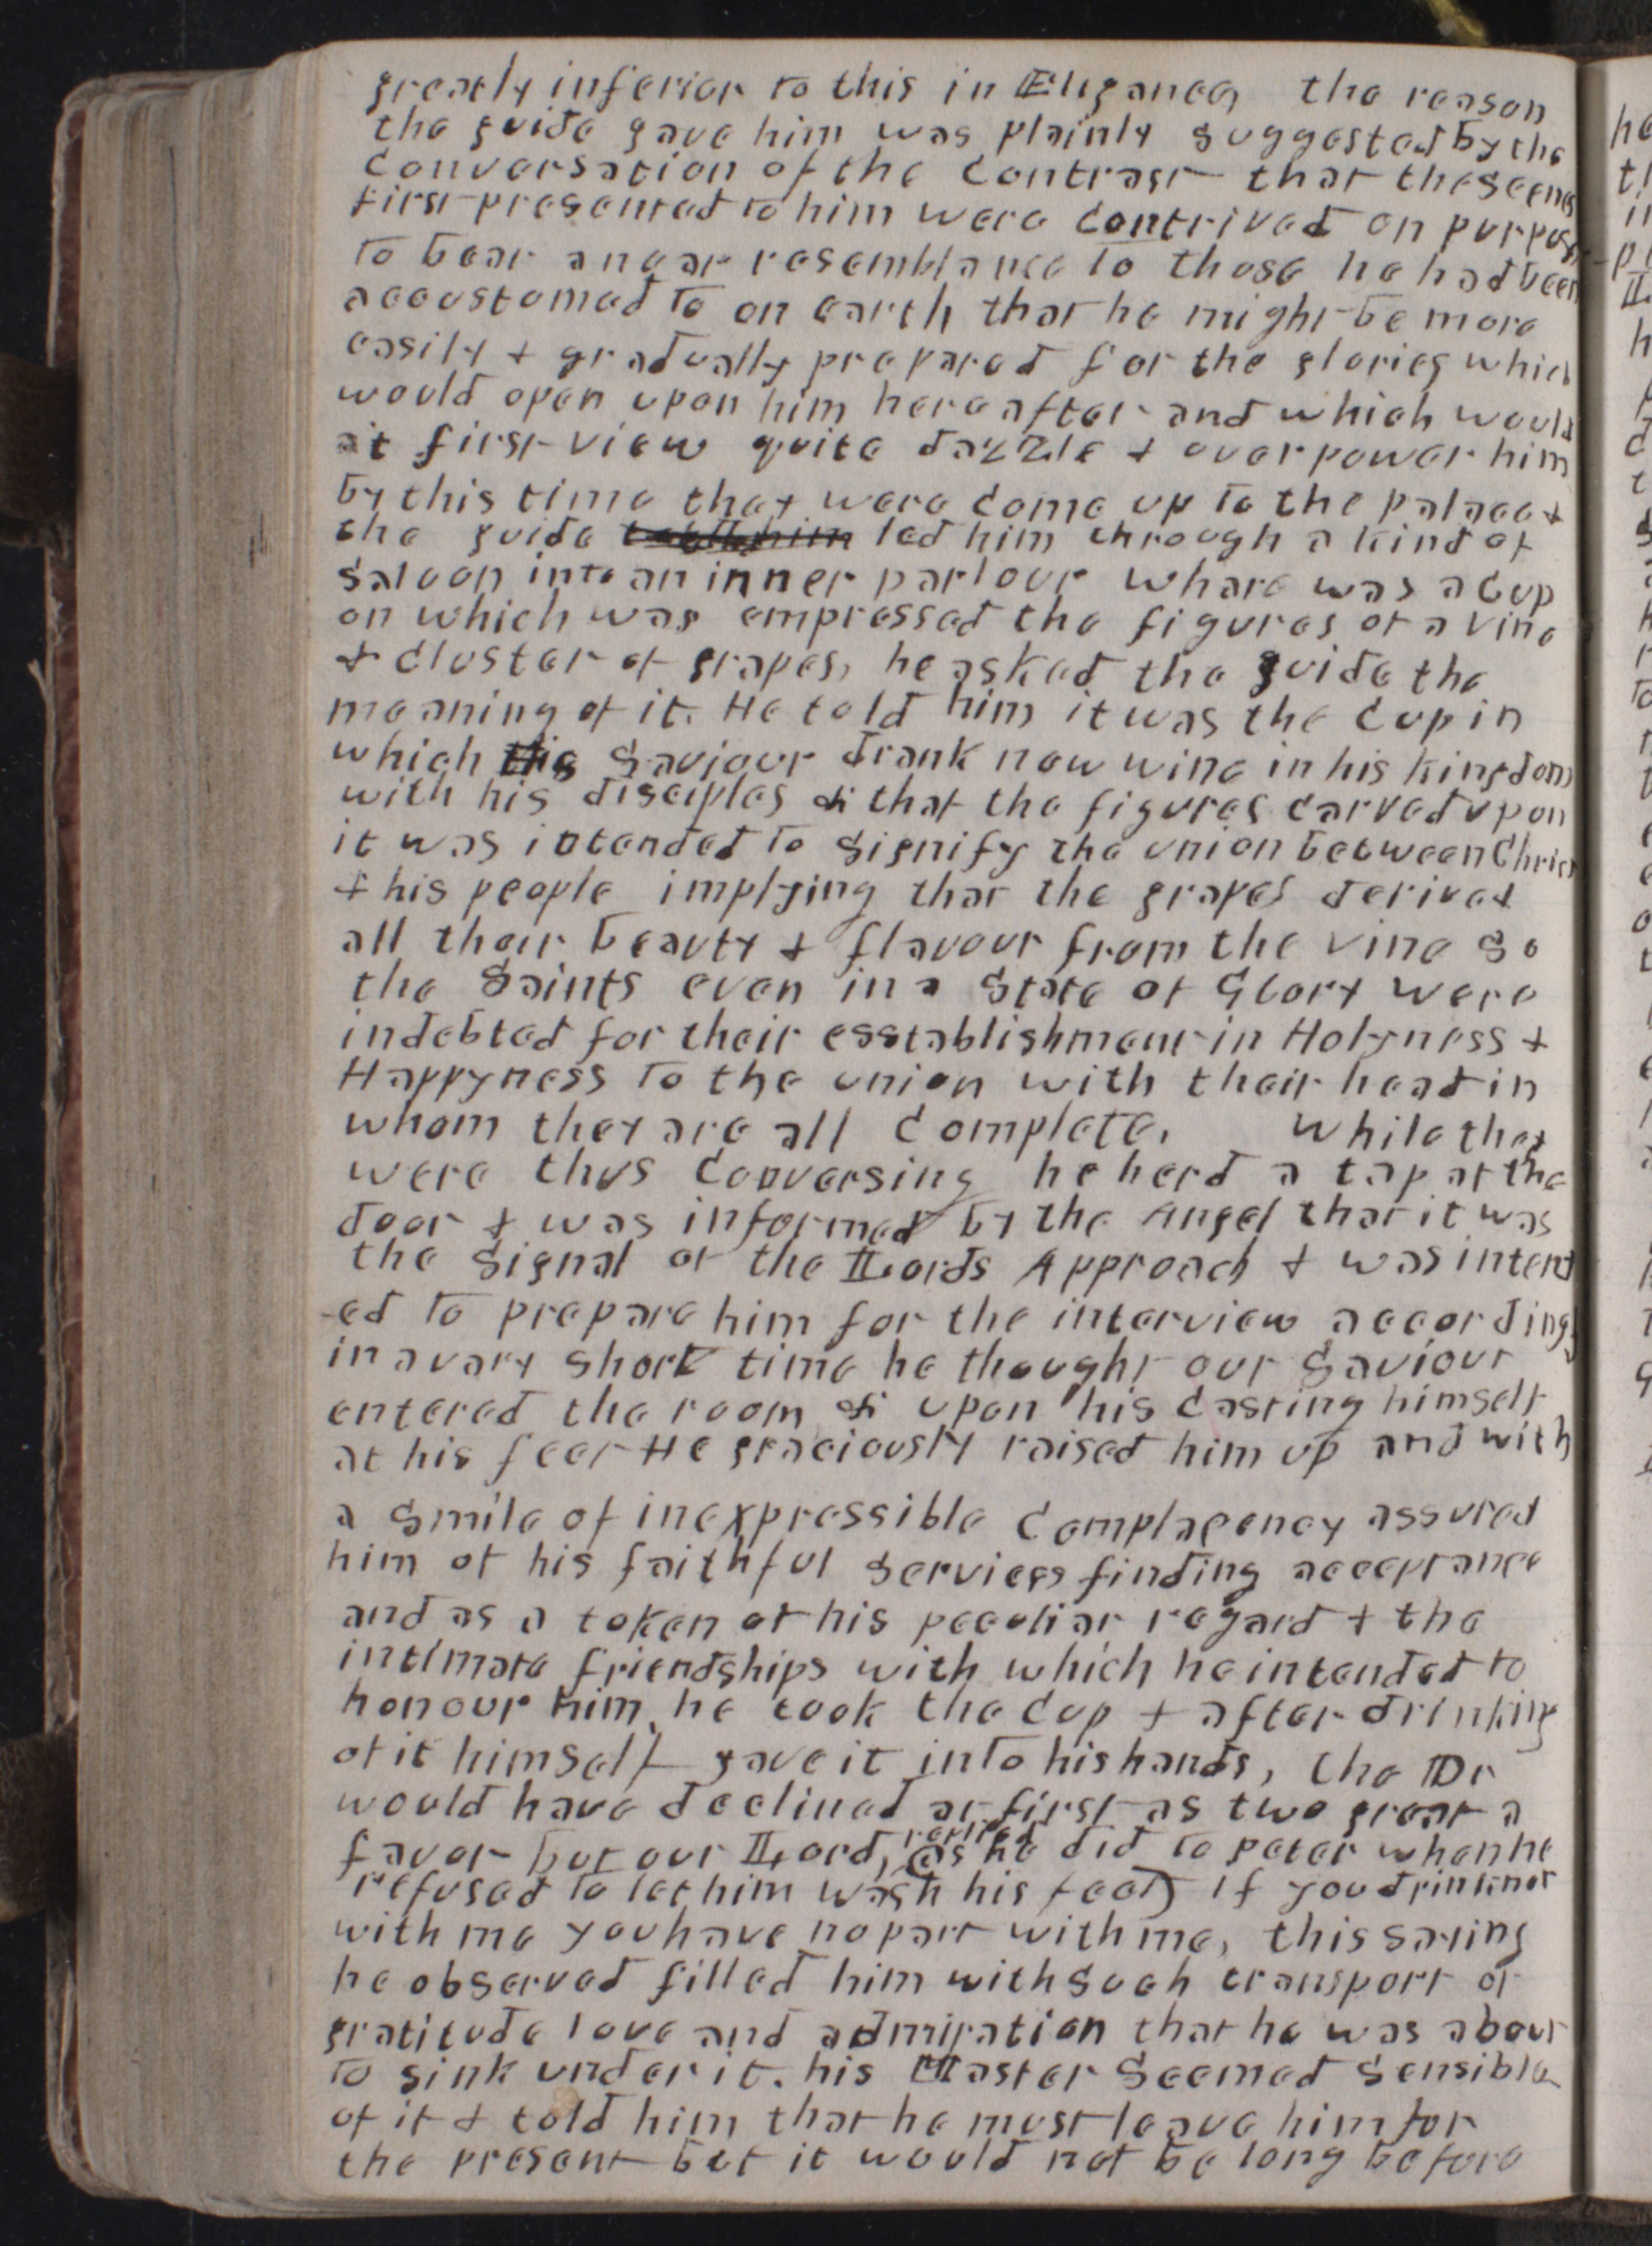 greatly inferior to this in Eligance, the reason
the guide gave him was plainly suggested by the
Conversation of the Contrast that the seens
first presented to him were Contrived on purpose
to bear a near resemblance to those he had been
accustomed to on earth that he might be more
easily + gradually prepared for the glories which
would open upon him hereafter and which would
at first view quite dazzle + overpower him
by this time they were come up to the palace +
the guide led him through a kind of
Saloon into an inner parlour whare was a Cup
on which was empressed the figures of a vine
+ Cluster of grapes, he asked the guide the
meaning of it. He told him it was the Cup in
which his Saviour drank new wine in his kingdom
with his disciples & that the figures Carved upon
it was intended to Signify the union between Christ
+ his people implying that the grapes derived
all their beauty + flavour from the vine So
the Saints even in a State of Glory were
indebted for their esstablishment in Holyness +
Happyness to the union with their head in
whom they are all Complete. While they
were thus Conversing he herd a tap at the
door + was informed by the Angel that it was
the Signal of the Lords Approach + was intend
-ed to prepare him for the interview accordingly
in a vary Short time he thought our Saviour
entered the room & upon his Casting himself
at his feet He graciously raised him up and with
a Smile of inexpressible Complacency assured
him of his faithful Services finding acceptance
and as a token of his peculiar regard + the
intimate friendships with which he intended to
honour him, he took the Cup + after drinking
of it himself gave it into his hands, the Dr
would have declined at first as two great a
favor but our Lord, replied (as he did to peter when he
refused to let him wash his feet) if you drink not
with me you have no part with me, this saying
he observed filled him with Such transport of
gratitude love and admiration that he was about
to sink under it. his Master Seemed Sensible
of it & told him that he must leave him for
the present but it would not be long before